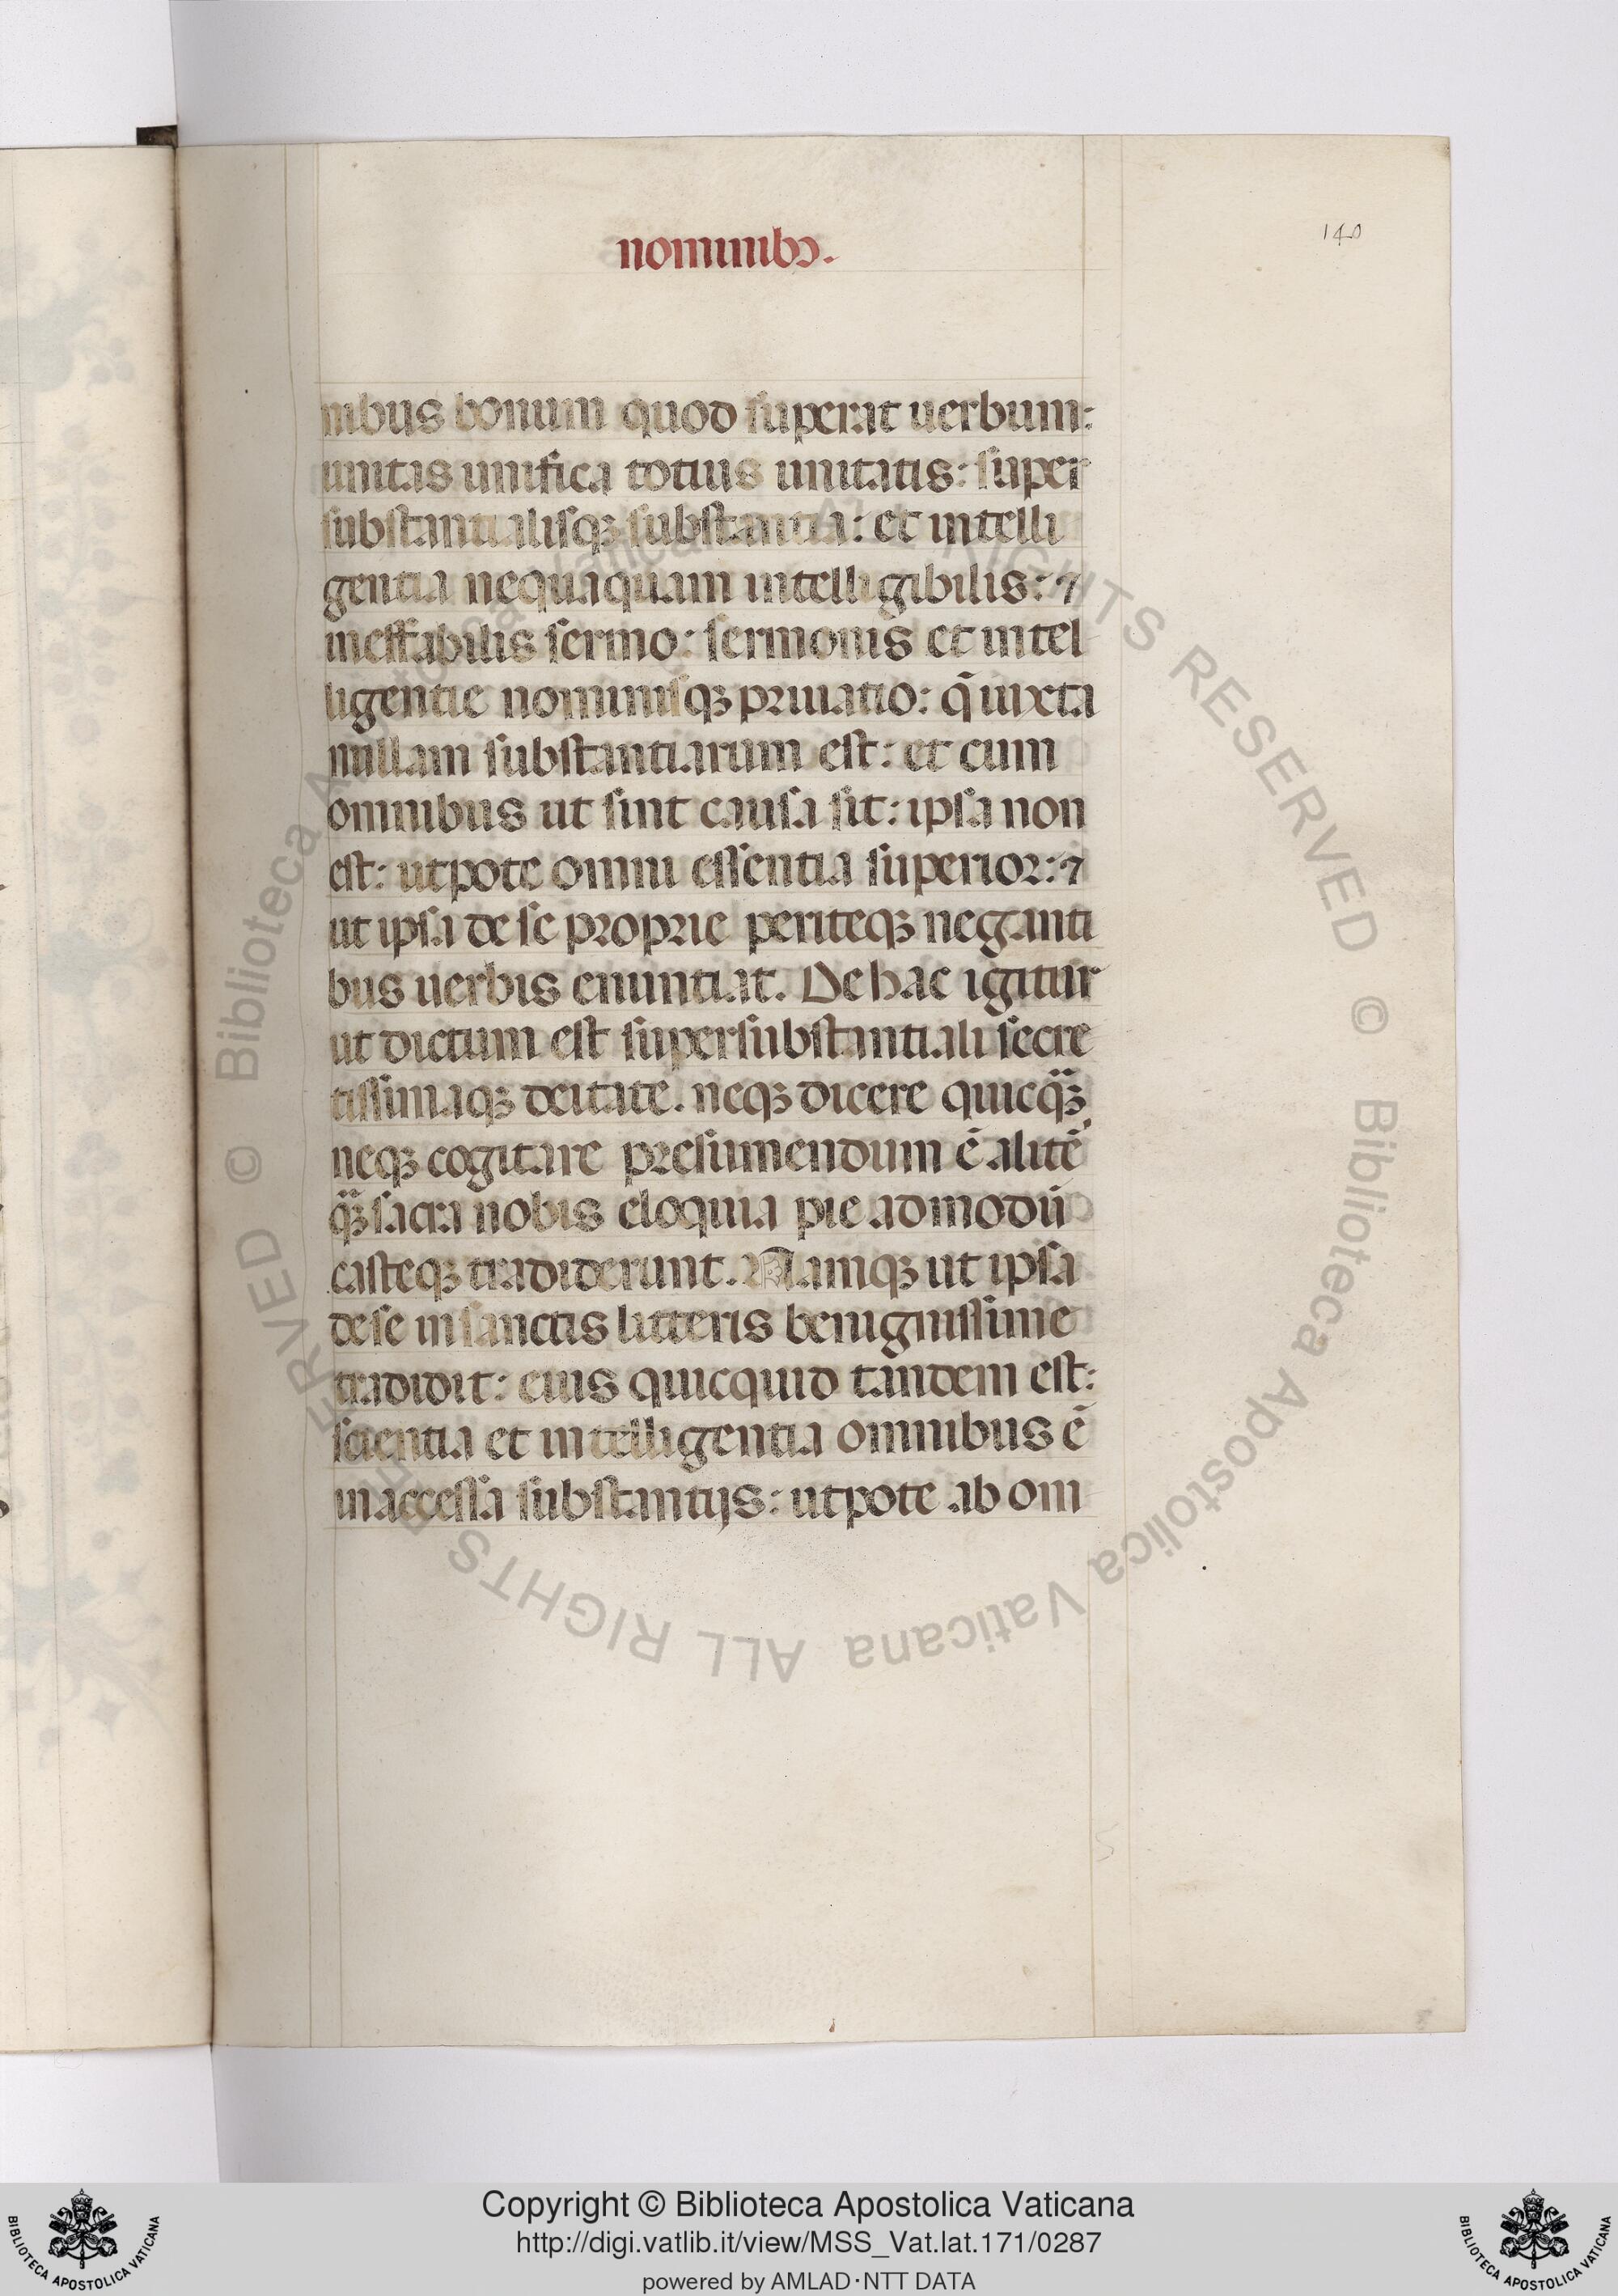 nominibꝫ.
140
nibus bonum quod superat uerbum:
unitas unifica totius unitatis: super
substantialisqꝫ substantia: et intelli
gentia nequaquam intelligibilis: ⁊
ineffabilis sermo: sermonis et intel
ligentie nominisqꝫ priuatio: q̄ iuxta
nullam substantiarum est: et cum
omnibus ut sint causa sit: ipsa non
est: utpote omni essentia superior: ⁊
ut ipsa de se proprie periteqꝫ neganti
bus uerbis enuntiat. De hac igitur
ut dictum est supersubstantiali secre
tissimaqꝫ deitate. neqꝫ dicere quicqꝫ̄
neqꝫ cogitare presumendum ē alitē
qꝫ̄ sacra nobis eloquia pie admodū
casteqꝫ tradiderunt. Namqꝫ ut ipsa
de se in sanctis litteris benignissime
tradidit: eius quicquid tandem est:
scientia et intelligentia omnibus ē
inaccessa substantijs: utpote ab om
© Biblioteca Apostolica Vaticana ALL RIGHTS RESERVED © Biblioteca Apostolica Vaticana ALL RIGHTS RESERVED
Copyright © Biblioteca Apostolica Vaticana
http://digi.vatlib.it/view/MSS_Vat.lat.171/0287
powered by AMLAD·NTT DATA
BIBLIOTECA APOSTOLICA VATICANA
BIBLIOTECA APOSTOLICA VATICANA